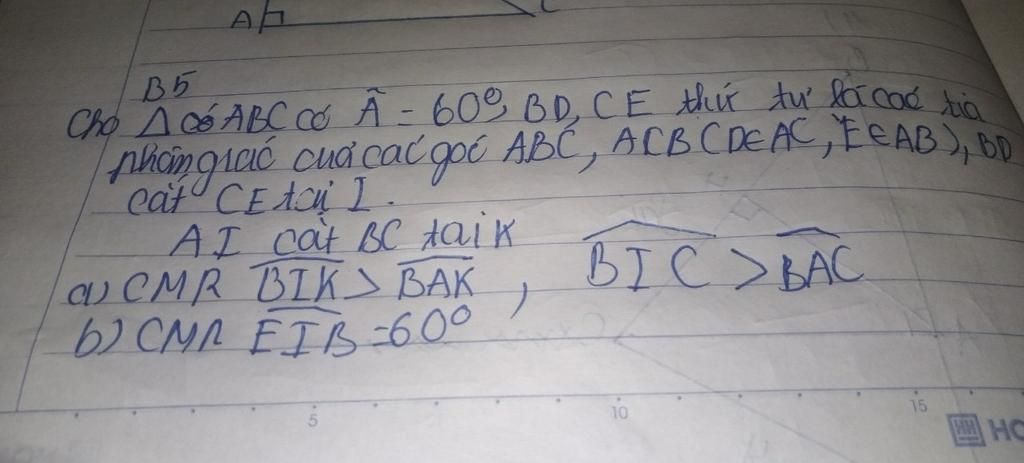 A C
B5
Cho Δ có ABC có Â = 60⁰, BD, CE thứ tự là các tia
phân giác của các góc ABC, ACB (D∈AC, E∈AB), BD
cắt CE tại I.
AI cắt BC tại K
a) CMR BIK > BAK , BIC > BAC
b) CMR EIB = 60⁰
5 10 15
HO